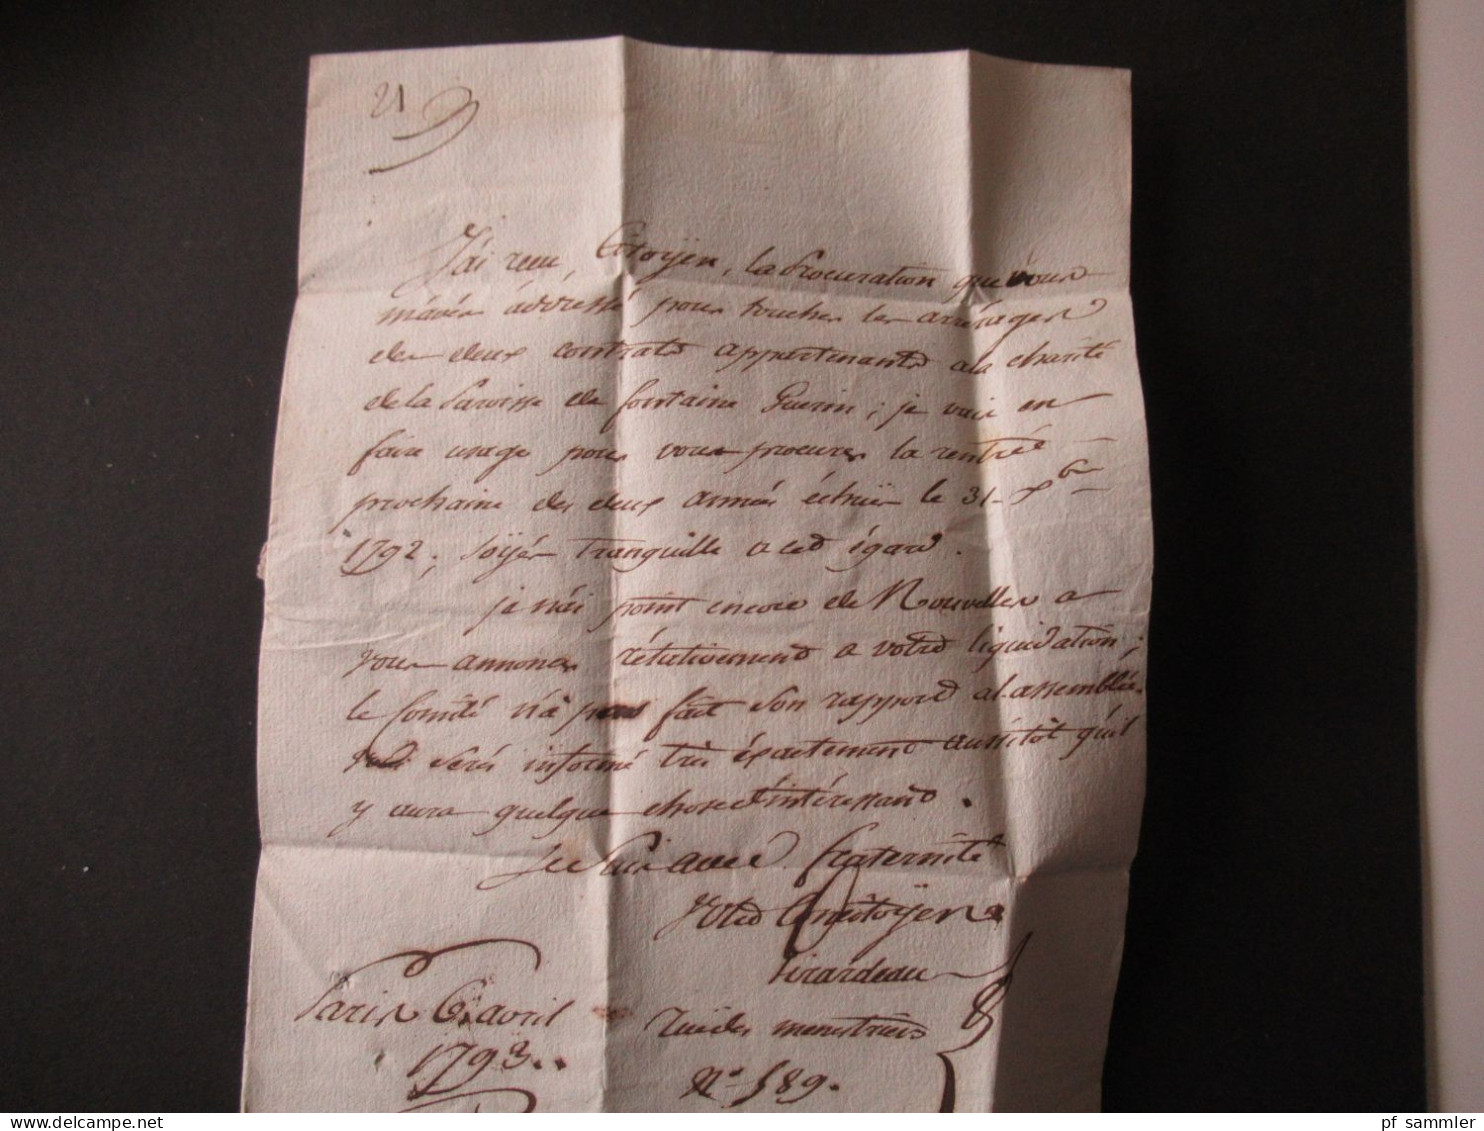 21
J'ai reçu, Citoÿen, la Procuration que vous
m'avés addressé pour toucher les arrérages
des deux contrats appartenants a la charité
de la Paroisse de fontaine Guerin ; je vais en
faire usage pour vous procurer la rentrée
prochaine des deux année échües le 31 Xbre
1792 ; soÿés tranquille a cet égard.
je n'ai point encore de Nouvelles a
vous annoncer rélativement a votre liquidation ;
le Comité n'a pas fait son rapport a l'assemblée.
serés informé très aussitôt qu'il
y aura quelque chose d'intéressant.
Je suis avec fraternité
Votre Concitoÿen
Girardeau
Paris 6 avril
rue des menestriers
1793..
N° 589.
pf_sammler